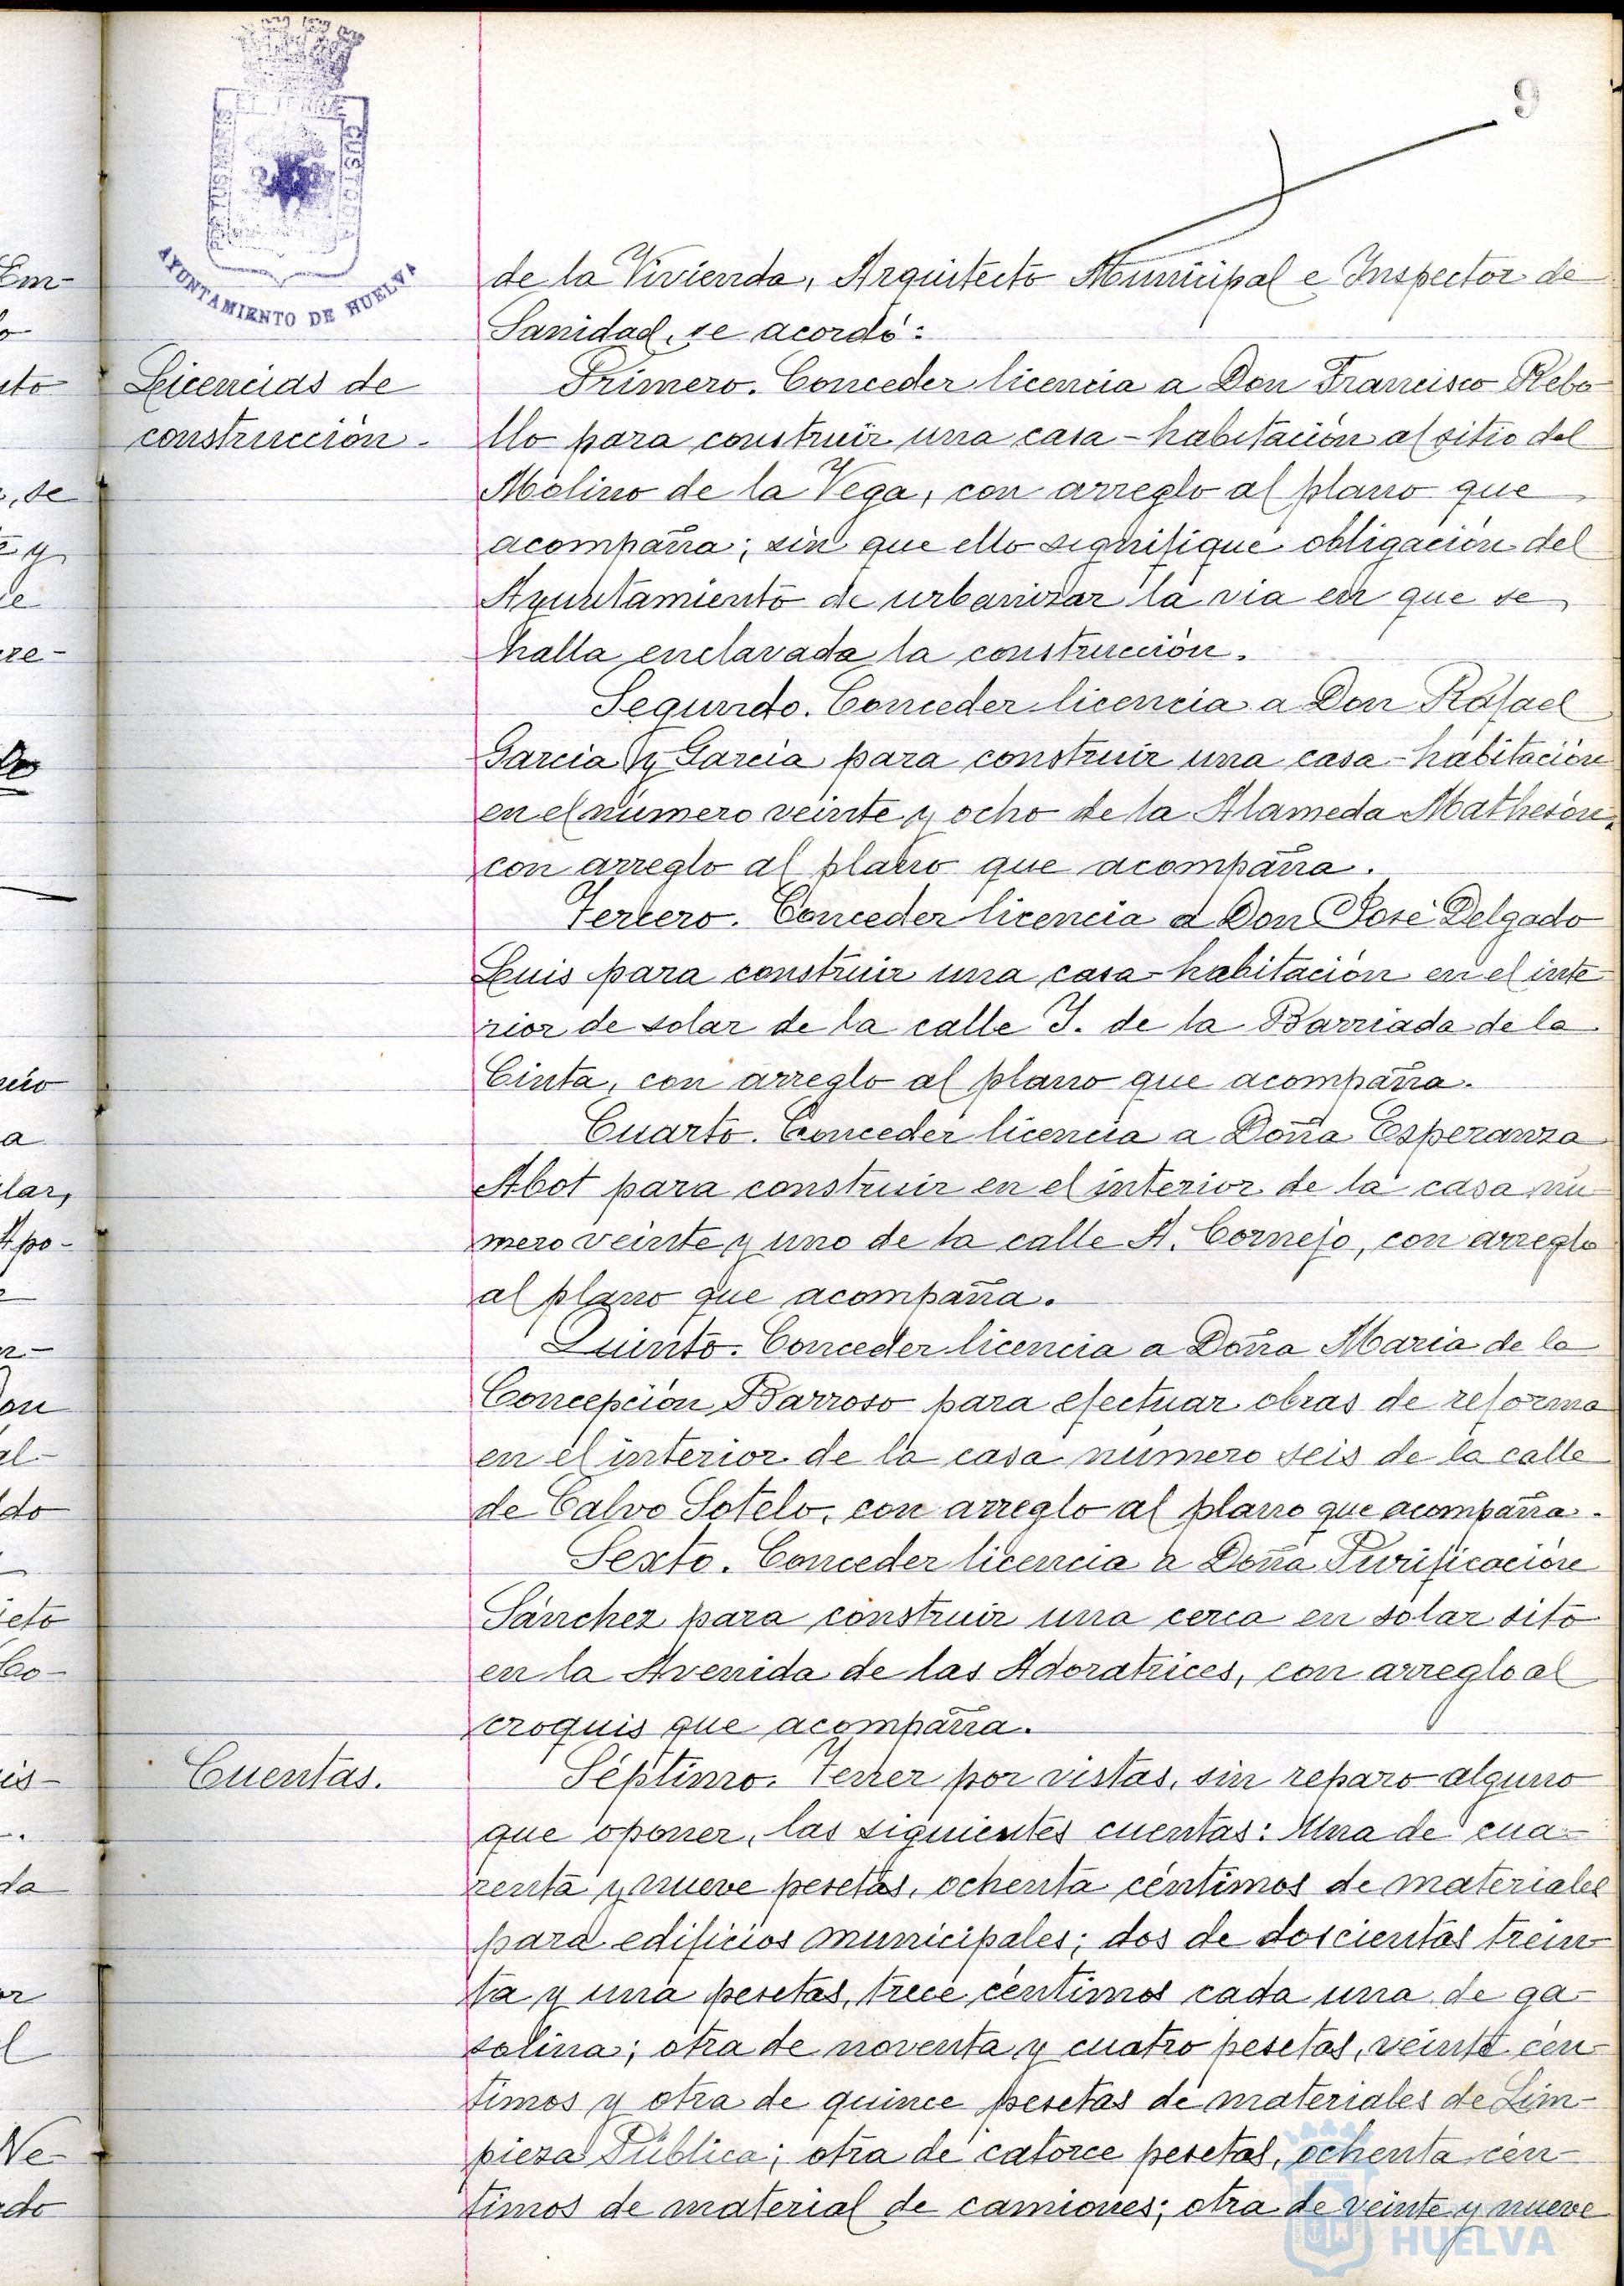 9
AYUNTAMIENTO DE HUELVA
de la Vivienda, Arquitecto Municipal e Inspector de
Sanidad, se acordó:
Licencias de
construcción.
Primero. Conceder licencia a Don Francisco Rebo
llo para construir una casa-habitación al sitio del
Molino de la Vega, con arreglo al plano que
acompaña; sin que ello signifique obligación del
Ayuntamiento de urbanizar la via en que se
halla enclavada la construcción.
Segundo. Conceder licencia a Don Rafael
Garcia y Garcia para construir una casa-habitación
en el número veinte y ocho de la Alameda Matheson,
con arreglo al plano que acompaña.
Tercero. Conceder licencia a Don José Delgado
Luis para construir una casa-habitación en el inte
rior de solar de la calle J. de la Barriada de la
Cinta, con arreglo al plano que acompaña.
Cuarto. Conceder licencia a Doña Esperanza
Abot para construir en el interior de la casa nú
mero veinte y uno de la calle A. Cornejo, con arreglo
al plano que acompaña.
Quinto. Conceder licencia a Doña Maria de la
Concepción Barroso para efectuar obras de reforma
en el interior de la casa número seis de la calle
de Calvo Sotelo, con arreglo al plano que acompaña.
Sexto. Conceder licencia a Doña Purificación
Sánchez para construir una cerca en solar sito
en la Avenida de las Adoratrices, con arreglo al
croquis que acompaña.
Cuentas.
Séptimo. Tener por vistas, sin reparo alguno
que oponer, las siguientes cuentas: Una de cua-
renta y nueve pesetas, ochenta céntimos de materiales
para edificios municipales; dos de doscientas trein-
ta y una pesetas, trece céntimos cada una de ga-
solina; otra de noventa y cuatro pesetas, veinte cén-
timos y otra de quince pesetas de materiales de Lim-
pieza Pública; otra de catorce pesetas, ochenta cén-
timos de material de camiones; otra de veinte y nueve
HUELVA